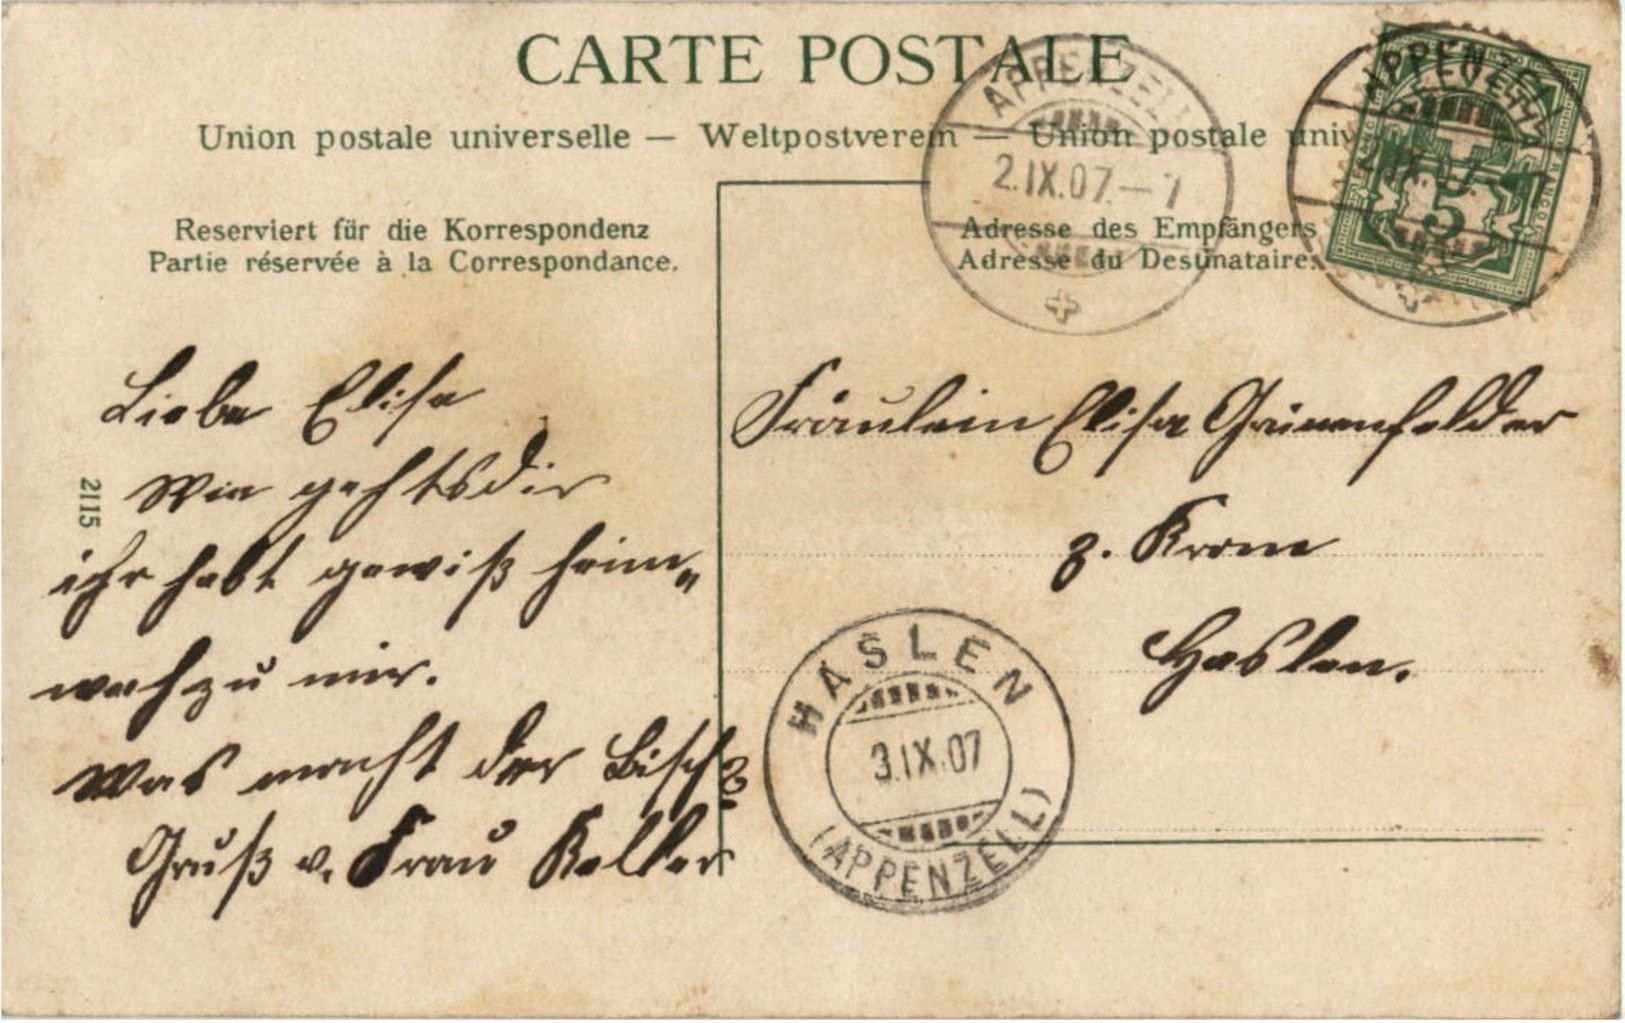 CARTE POSTALE
Union postale universelle — Weltpostverein — Union postale univ
Reserviert für die Korrespondenz
Partie réservée à la Correspondance.
Adresse des Empfängers
Adresse du Destinataire.
APPENZELL
2.IX.07.–7
APPENZELL
5
FRANCO
2115
Liebe Elisa
Wie gehtsdir
ihr habt gewiß heim„
wehzu mir.
Was macht der Bisch?
Gruß v. Frau Keller
Fräulein Elisa Grünenfelder
z. Krone
Haslen.
HASLEN
3.IX.07
(APPENZELL)